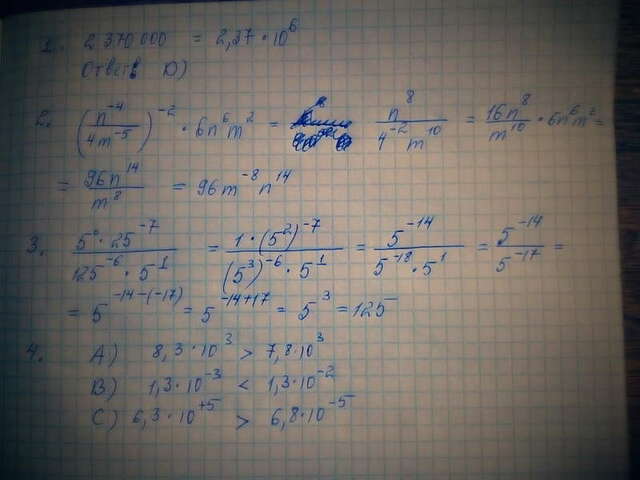 1. 2 370 000 = 2,37 · 10^6
Ответ D)
2. (n^-4 / 4m^-5)^-2 · 6n^6 m^2 = n^8 / 4^-2 m^10 = 16n^8 / m^10 · 6n^6 m^2 =
= 96n^14 / m^8 = 96m^-8 n^14
3. 5^0 · 25^-7 / 125^-6 · 5^1 = 1 · (5^2)^-7 / (5^3)^-6 · 5^1 = 5^-14 / 5^-18 · 5^1 = 5^-14 / 5^-17 =
= 5^-14-(-17) = 5^-14+17 = 5^3 = 125
4. A) 8,3 · 10^3 > 7,8 · 10^3
B) 1,3 · 10^-3 < 1,3 · 10^-2
C) 6,3 · 10^+5 > 6,8 · 10^-5